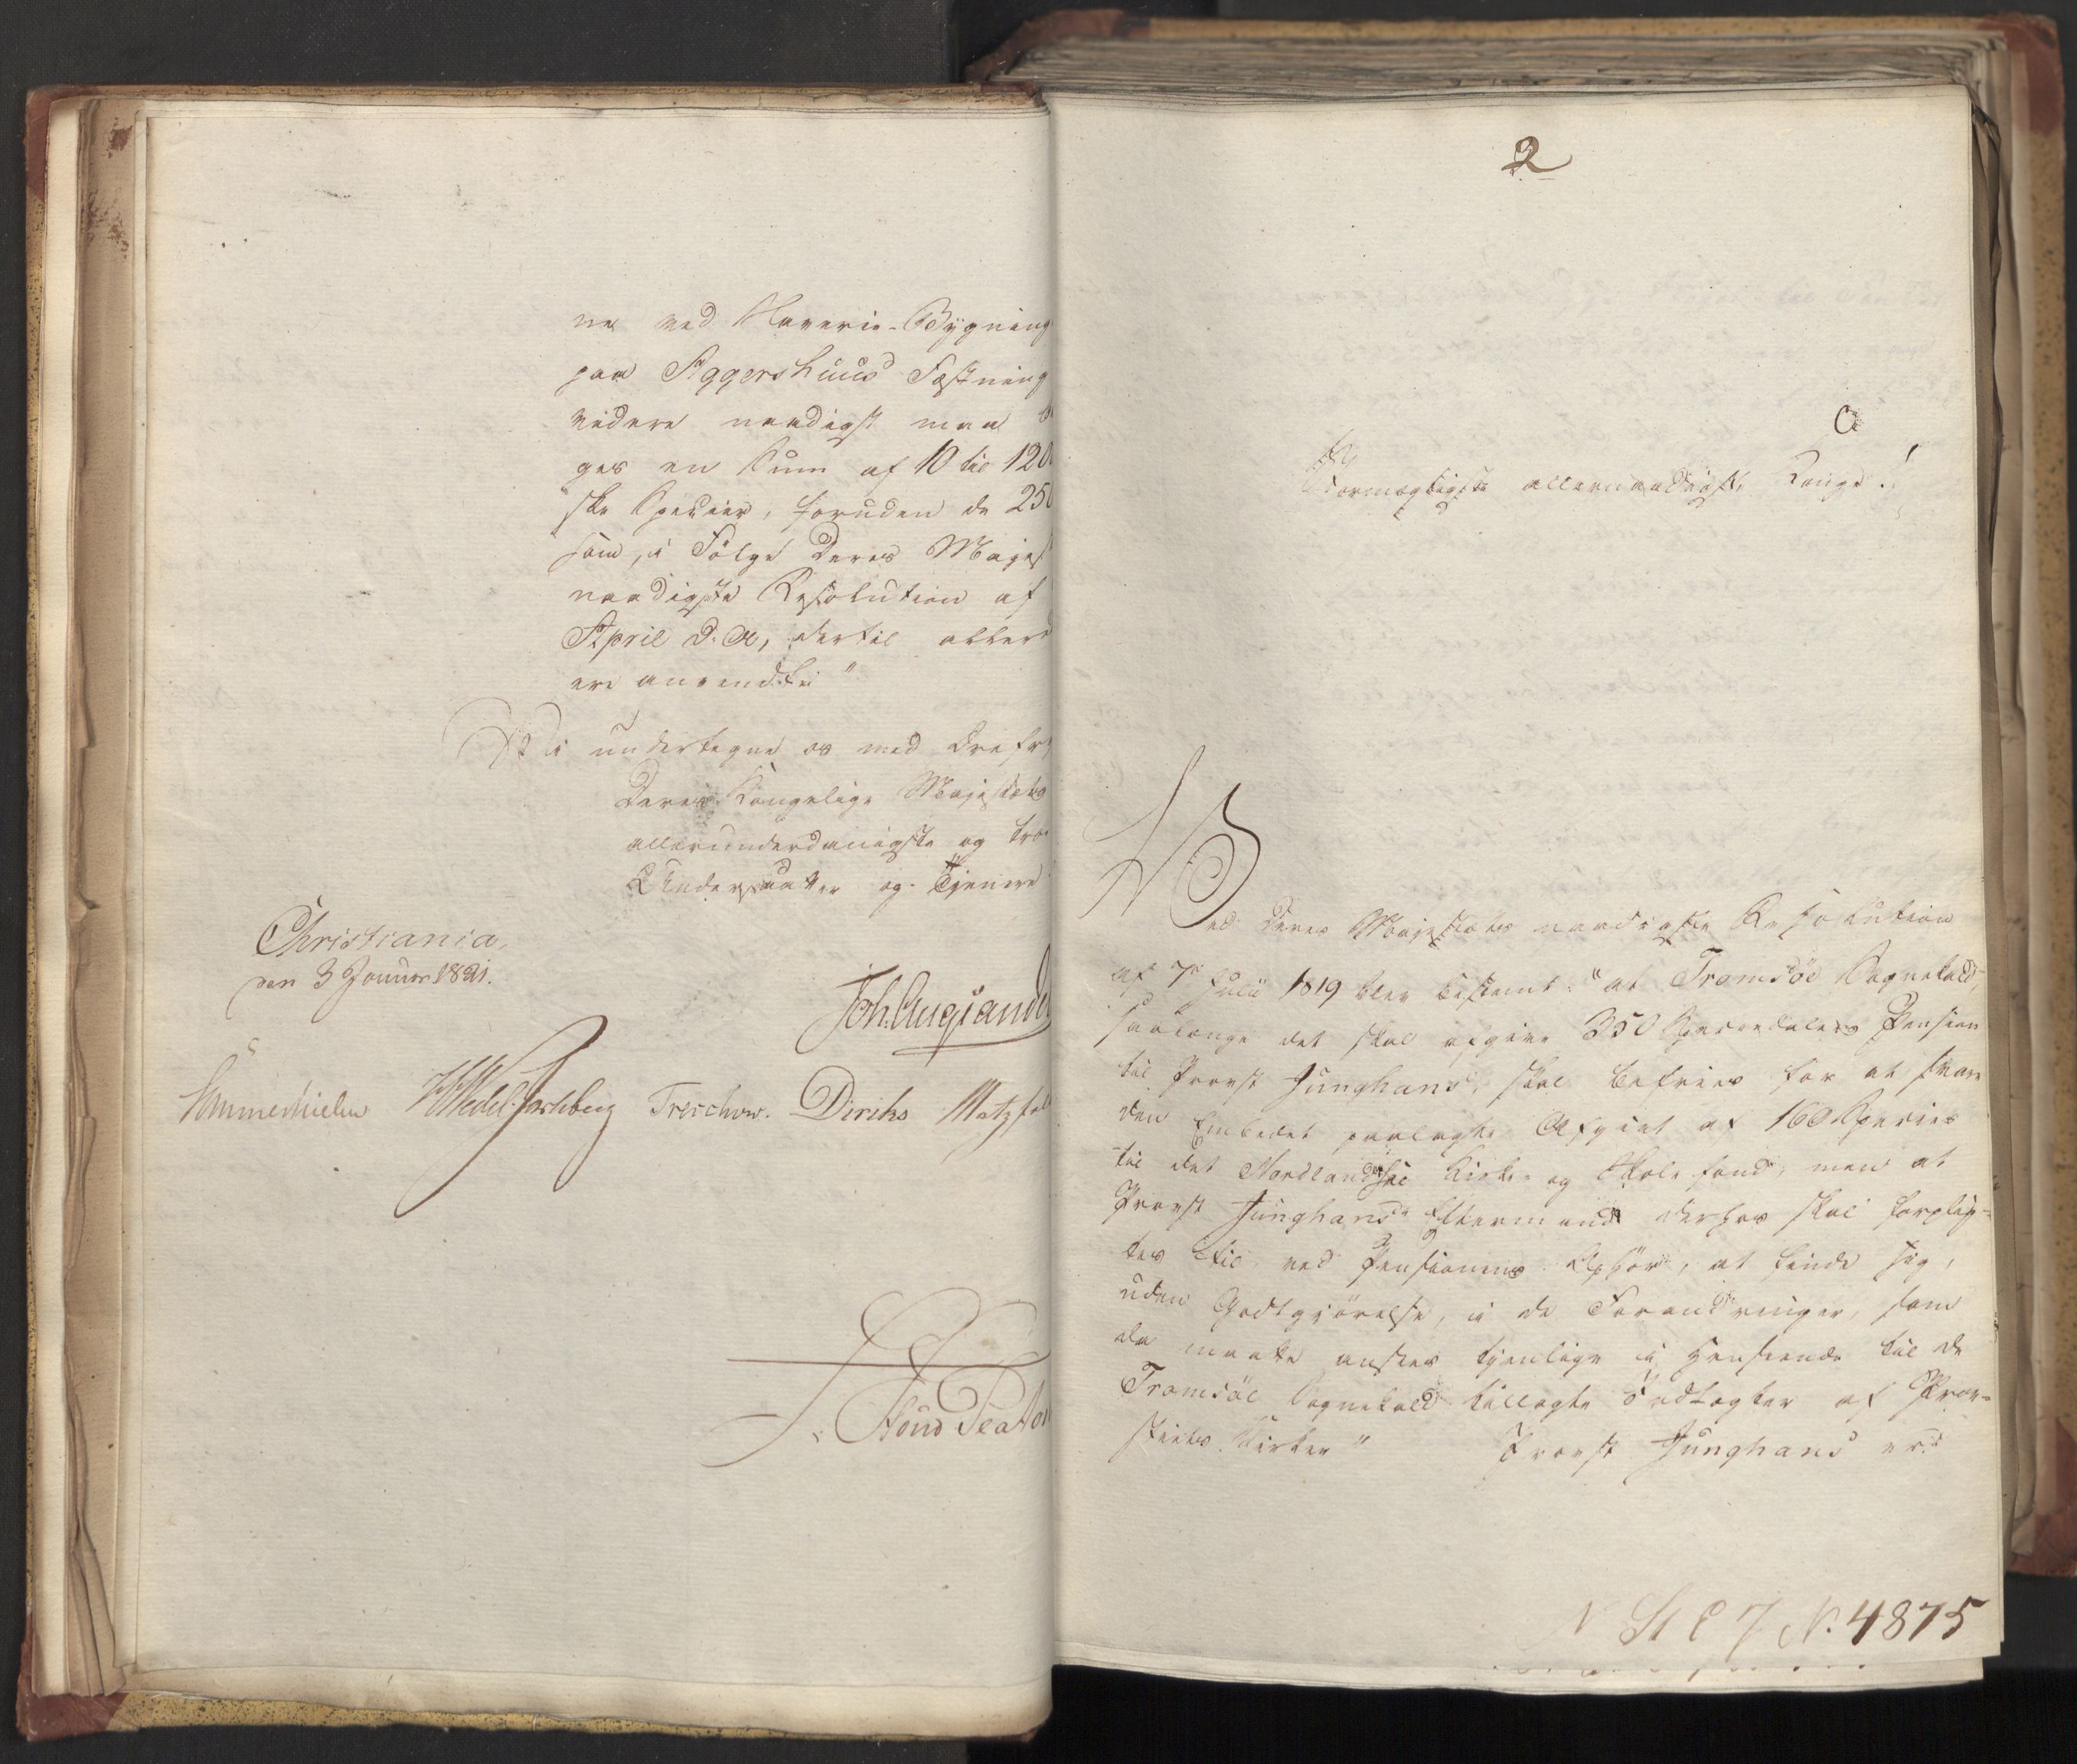 ne ved Slaverie-Bygning
paa Aggershuus Fæstning
videre naadigst maa
ges en Sum af 10 til 120
ske Specier, foruden de 250
som, i Følge Deres Majest
naadigste Resolution af
April d. A, dertil allere
ere anvendte"
Vi undertegne os med Ærefr
Deres Kongelige Majestæts
allerunderdanigste og tro
Undersaatter og Tjenere
Christiania,
den 3 Januar 1821.
Joh. Aug. Sandel
Sommerhielm Wedel Jarlsberg Treschow. Diriks Motzfel
2
Stormægtigste allernaadigste Konge!
Ved Deres Majestæts naadigste Resolution
af 7de Julii 1819 blev bestemt: "at Tromsöe Sognekald,
saalænge det skal afgive 350 Speciedalers Pension
til Provst Junghans, skal befries for at svare
den Embedet paalagte Afgivt af 160 Species
til det Nordlandske Kirke- og Skolefond, men at
Provst Junghans' Eftermand derhos skal forplig-
tes til, ved Pensionens Ophör, at finde sig,
uden Godtgjörelse, i de Forandringer, som
da maatte ansees tjenlige i Henseende til de
Tromsöe Sognekald tillagte Indtægter af Prov-
stiets Kirker" Provst Junghans er
N 4875